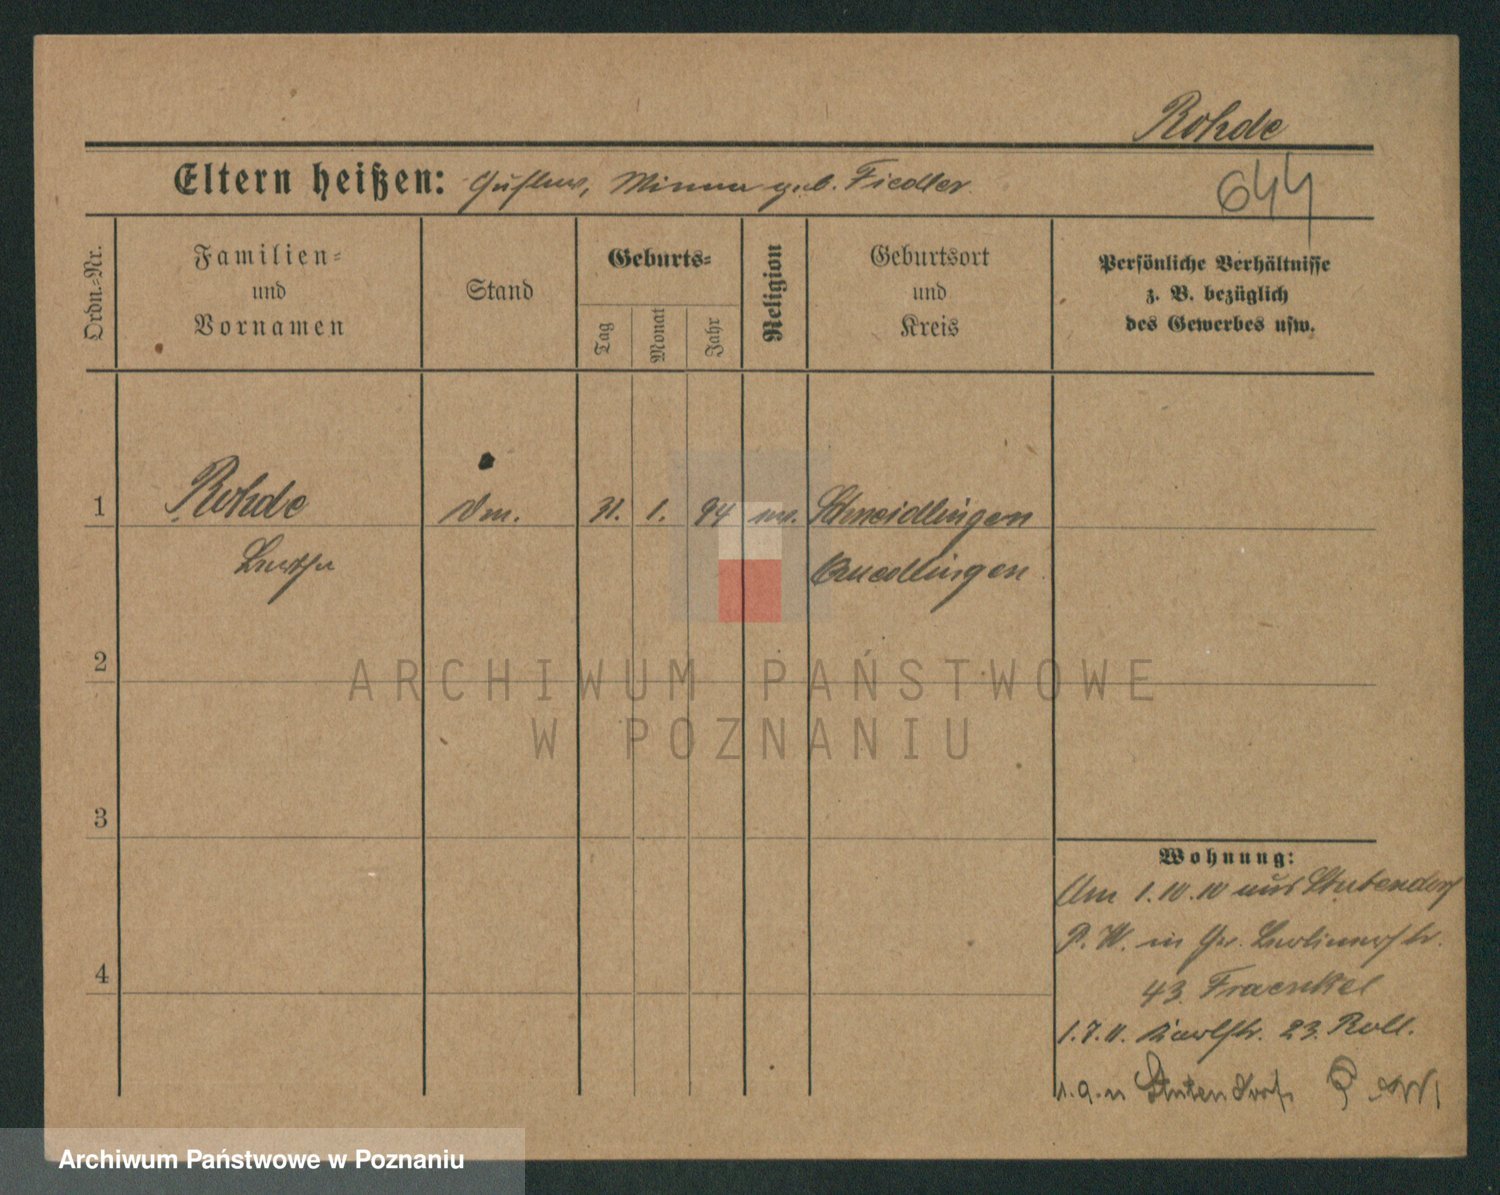 Rohde
644
Eltern heißen: Gustav, Minna geb. Fiedler
Ordn.-Nr.
Familien-
und
Vornamen
Stand
Geburts-
Tag
Monat
Jahr
Religion
Geburtsort
und
Kreis
Persönliche Verhältnisse
z. B. bezüglich
des Gewerbes usw.
1
Rohde
31. 1. 94 ev.
Schneidlingen
Bertha
Quedlingen
2
ARCHIWUM PAŃSTWOWE
W POZNANIU
3
4
Wohnung:
Am 1.10.10 aus Stutendorf
P. W. in Gr. Berlinerstr.
43. Fraenkel
1.7.11. Karlstr. 23. Roll.
Stutendorf P. W.
Archiwum Państwowe w Poznaniu